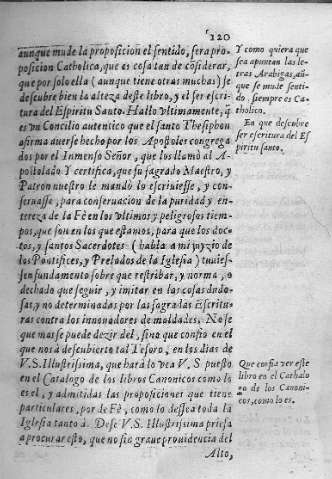 120
aunque mude la proposicion el sentido, sera pro-
posicion Catholica, que es cosa tan de cõsiderar,
que por solo ella (aunque tiene otras muchas) se
descubre bien la alteza deste libro, y el ser escri-
tura del Espiritu Santo. Hallo vltimamente, q̃
es vn Concilio autentico que el santo Thesiphon
afirma auerse hecho por los Apostoles congrega
dos por el Inmenso Señor, que los llamò al A-
postolado Y certifica, que su sagrado Maestro, y
Patron nuestro le mandò lo escriuiesse, y con-
seruasse, para conseruacion de la puridad y en-
tereza de la Fè en los vltimos y peligrosos tiem-
pos, que son en los que estamos, para que los doc-
tos, y santos Sacerdotes (habla a mi juyzio de
los Põtifices, y Prelados de la Iglesia) tuuies-
sen fundamento sobre que restribar, y norma, o
dechado que seguir, y imitar en las cosas dudo-
sas, y no determinadas por las sagradas Escritu-
ras contra los innouadores de maldades. No se
que mas se puede dezir del, sino que confio en el
que nos à descubierto tal Tesoro, en los dias de
V. S. Illustrissima, que harà lo vea V. S puesto
en el Catalogo de los libros Canonicos como lo
es el, y admitidas las proposiciones que tiene
particulares, por de Fè, como lo dessea toda la
Iglesia tanto à. Dese V. S. Illustrissima priessa
a procurar esto, que no sin graue prouidencia del
Alto,
Y como quiera que
sea apuntan las le-
tras Arabigas, aũ-
que se mude senti-
do, siempre es Ca-
tholico.
En que descubre
ser escritura del Es
piritu santo.
Que confia ver este
libro en el Cathalo
go de los Canoni-
cos, como lo es.